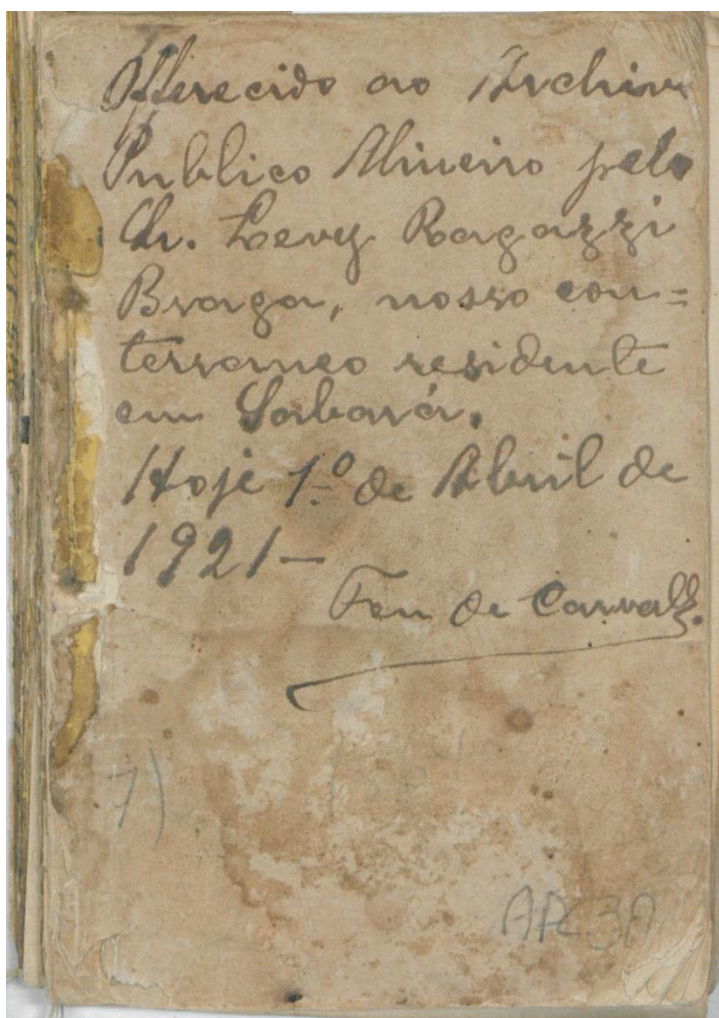 Offerecido ao Archivo
Publico Mineiro pelo
Sr. Levy Ragazzi
Braga, nosso con=
terraneo residente
em Sabará.
Hoje 1º de Abril de
1921—
Feu de Carvalho.
7)